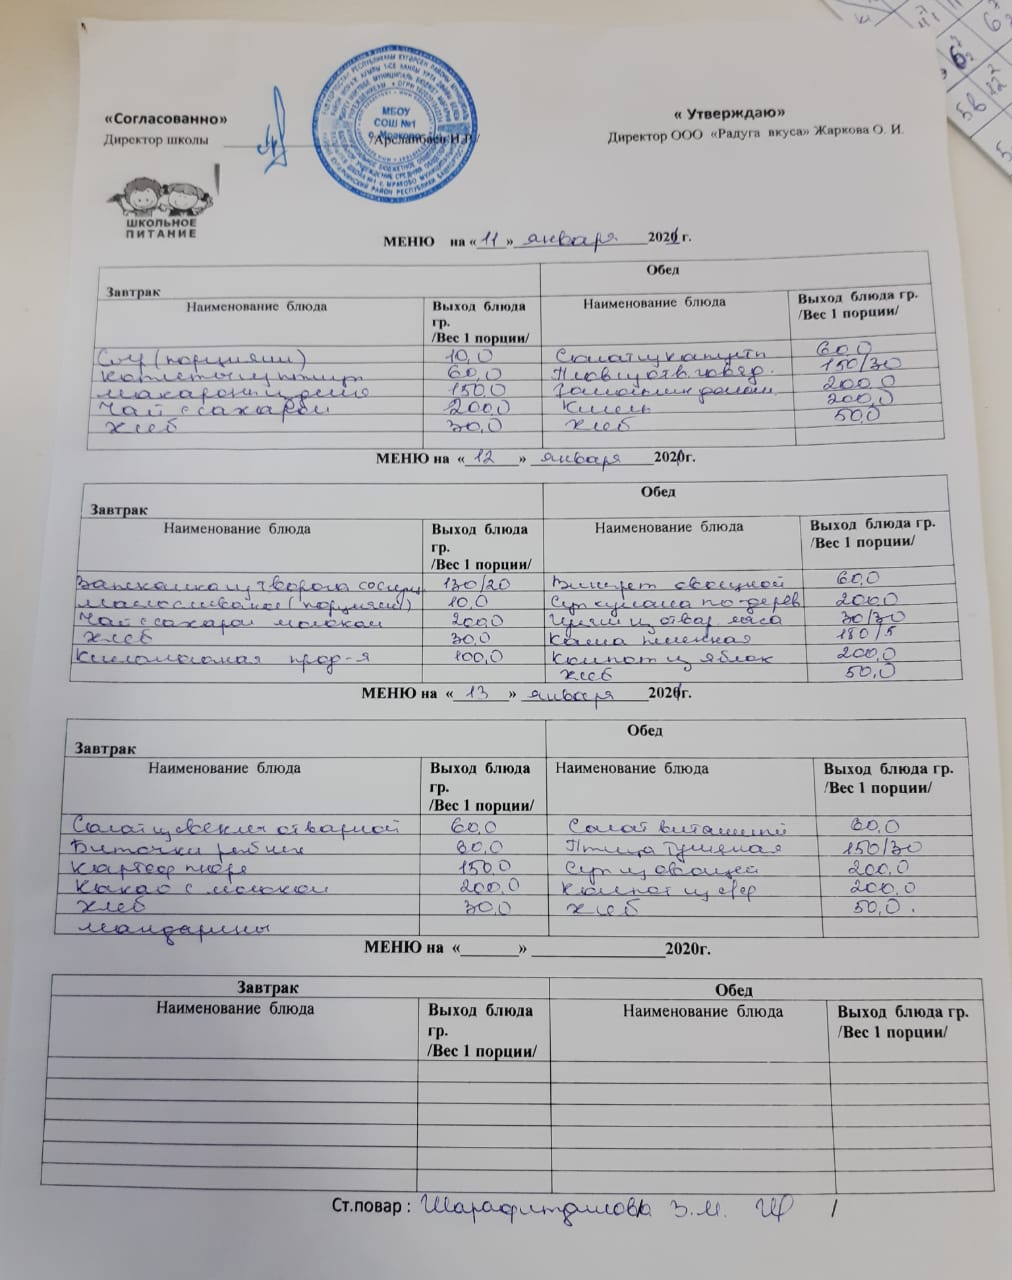 «Согласованно»
« Утверждаю»
Директор школы /Арсланбаев Н.Р/
Директор ООО «Радуга вкуса» Жаркова О. И.
МБОУ
СОШ №1
с. Мраково
ШКОЛЬНОЕ
ПИТАНИЕ
МЕНЮ на « 11 » января 2021г.
Завтрак Обед
Наименование блюда Выход блюда гр. /Вес 1 порции/ Наименование блюда Выход блюда гр. /Вес 1 порции/
Сыр (порциями) 10,0 Салат из капусты 60,0
Котлеты из птицы 60,0 Плов из отв. говяд. 150/30
макароны 150,0 200,0
Чай с сахаром 200,0 Кисель 200,0
хлеб 30,0 хлеб 50,0
МЕНЮ на « 12 » января 2021г.
Завтрак Обед
Наименование блюда Выход блюда гр. /Вес 1 порции/ Наименование блюда Выход блюда гр. /Вес 1 порции/
Запеканка из творога со сгущ. 130/20 Винегрет овощной 60,0
масло сливочное (порциями) 10,0 Суп кулама по-дерев 200,0
Чай с сахаром молоком 200,0 из отвар. мяса 30/30
хлеб 30,0 Каша пшенная 180/5
Кисломолочная прод-я 100,0 Компот из яблок 200,0
хлеб 50,0
МЕНЮ на « 13 » января 2021г.
Завтрак Обед
Наименование блюда Выход блюда гр. /Вес 1 порции/ Наименование блюда Выход блюда гр. /Вес 1 порции/
Салат из свеклы отварной 60,0 Салат витаминный 60,0
Биточки рыбные 60,0 Птица тушеная 150/30
Картоф пюре 150,0 Суп из овощей 200,0
Какао с молоком 200,0 Компот из сф 200,0
хлеб 30,0 хлеб 50,0.
мандарины
МЕНЮ на «______» ________________2020г.
Завтрак Обед
Наименование блюда Выход блюда гр. /Вес 1 порции/ Наименование блюда Выход блюда гр. /Вес 1 порции/
Ст.повар : З.М. /